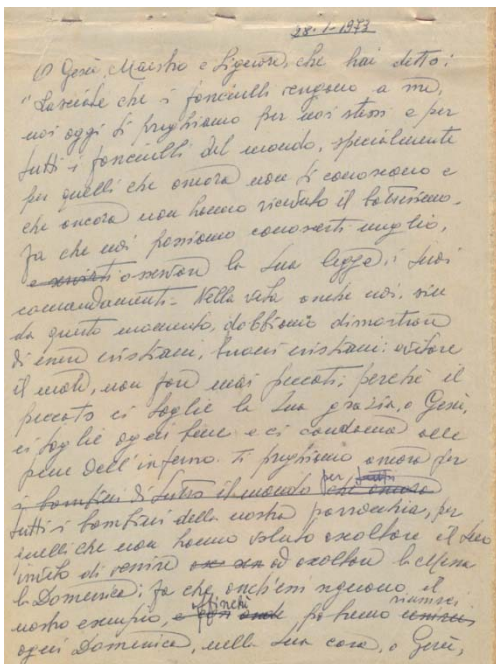 28-1-1973
O Gesù, Maestro e Signore, che hai detto:
"Lasciate che i fanciulli vengano a me,
noi oggi ti preghiamo per noi stessi e per
tutti i fanciulli del mondo, specialmente
per quelli che ancora non ti conoscono e
che ancora non hanno ricevuto il battesimo.
Fa che noi possiamo conoscerti meglio,
e servirti osservare la tua legge, i tuoi
comandamenti - Nella vita anche noi, sin
da questo momento, dobbiamo dimostrare
di essere cristiani, buoni cristiani: evitare
il male, non fare mai peccati; perché il
peccato ci toglie la tua grazia, o Gesù,
ci toglie ogni bene e ci condanna alle
pene dell'inferno. Ti preghiamo ancora per
i bambini di tutto il mondo per tutti che ancora
tutti i bambini della nostra parrocchia, per
quelli che non hanno voluto ascoltare il tuo
invito di venire ad ascoltare la Messa
la Domenica; fa che anch'essi seguano il
nostro esempio, e affinché riunirci
ogni Domenica, nella tua casa, o Gesù,